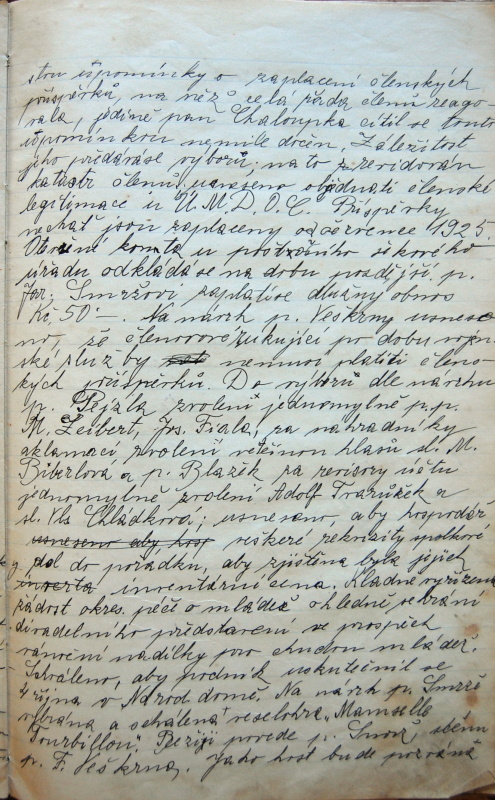 stou úpomínky o zaplacení členských
příspěvků, na něž celá řada členů reago-
vala, jedině pan Chaloupka cítil se touto
úpomínkou nemile dotčen. Záležitost
jeho předává se výboru; na to zrevidován
katastr členů, usneseno objednati členské
legitimace u Ú.M.D.O.Č. Příspěvky
nechať jsou zaplaceny od července 1925
Otevření konta u poštovního šekového
úřadu odkládá se na dobu pozdější. p.
Jar. Smržovi zaplatí se dlužný obnos
Kč 50·–. Na návrh p. Veškrny usnese-
no, že členové vykukující po dobu vojen-
ské služby nemusí platiti člens-
kých příspěvků. Do výboru dle návrhu
p. Pejzla zvoleni jednomyslně p.p.
M. Leibert, Jos. Fiala, za náhradníky
aklamací zvoleni většinou hlasů sl. M.
Biberlová a p. Blažek za revisory účtů
jednomyslně zvoleni Adolf Tvarůžek a
sl. Vls Chládková; usneseno, aby hospodář
usneseno aby, hosp veškeré rekvisity spolkové
dal do pořádku, aby zjištěna byla jejich
inventární cena. Kladně vyřízena
žádost okres. péče o mládež ohledně sehrání
divadelního představení ve prospěch
vánoční nadílky pro chudou mládež.
Schváleno, aby podnik uskutečnil se
4 října v Národ. domě. Na návrh p. Smrže
vybrána a schválena veselohra „Mamselle
Tourbillon". Režii povede p. Smrž, scénu
p. F. Veškrna. Jako host bude pozvána